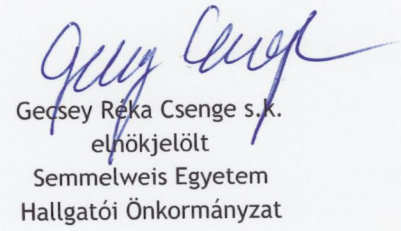 Gecsey Réka Csenge s.k.
elnökjelölt
Semmelweis Egyetem
Hallgatói Önkormányzat